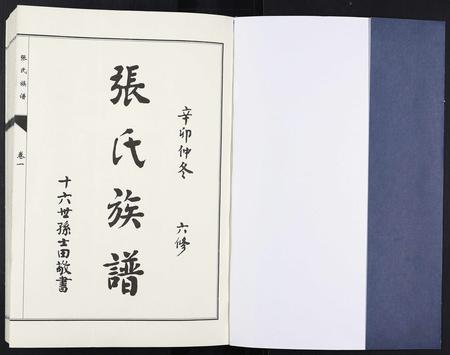 辛卯仲冬 六修
張氏族譜
十六世孫士田敬書
张氏族谱
卷一